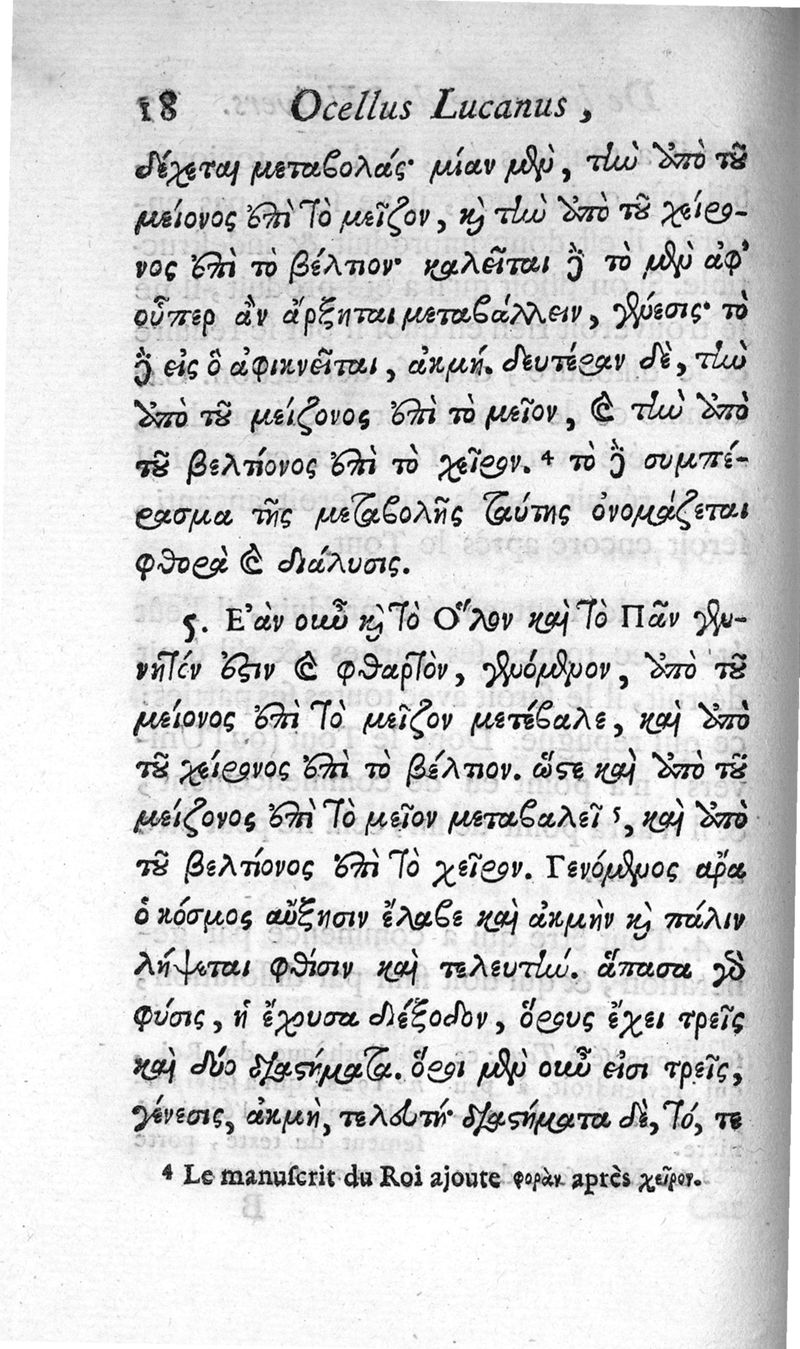 18 Ocellus Lucanus,
δέχεται μεταβολάς· μίαν μὲν, τὴν ἀπὸ τοῦ
μείονος ἐπὶ τὸ μεῖζον, καὶ τὴν ἀπὸ τοῦ χείρο-
νος ἐπὶ τὸ βέλτιον· καλεῖται δὲ τὸ μὲν ἀφ’
οὗπερ ἂν ἄρξηται μεταβάλλειν, γένεσις· τὸ
δὲ εἰς ὃ ἀφικνεῖται, ἀκμή. δευτέραν δὲ, τὴν
ἀπὸ τοῦ μείζονος ἐπὶ τὸ μεῖον, καὶ τὴν ἀπὸ
τοῦ βελτίονος ἐπὶ τὸ χεῖρον. 4 τὸ δὲ συμπέ-
ρασμα τῆς μεταβολῆς ταύτης ὀνομάζεται
φθορὰ καὶ διάλυσις.
5. Ἐὰν οὖν καὶ τὸ Ὅλον καὶ τὸ Πᾶν γεν-
νητέν ἐστιν καὶ φθαρτὸν, γενόμενον, ἀπὸ τοῦ
μείονος ἐπὶ τὸ μεῖζον μετέβαλε, καὶ ἀπὸ
τοῦ χείρονος ἐπὶ τὸ βέλτιον. ὥστε καὶ ἀπὸ τοῦ
μείζονος ἐπὶ τὸ μεῖον μεταβαλεῖ 5, καὶ ἀπὸ
τοῦ βελτίονος ἐπὶ τὸ χεῖρον. Γενόμενος ἄρα
ὁ κόσμος αὔξησιν ἔλαβε καὶ ἀκμὴν καὶ πάλιν
λήψεται φθίσιν καὶ τελευτήν. ἅπασα γὰρ
φύσις, ἡ ἔχουσα διέξοδον, ὅρους ἔχει τρεῖς
καὶ δύο διαστήματα. ὅροι μὲν οὖν εἰσι τρεῖς,
γένεσις, ἀκμὴ, τελευτή· διαστήματα δὲ, τό, τε
4 Le manuſcrit du Roi ajoute φορὰν après χεῖρον.